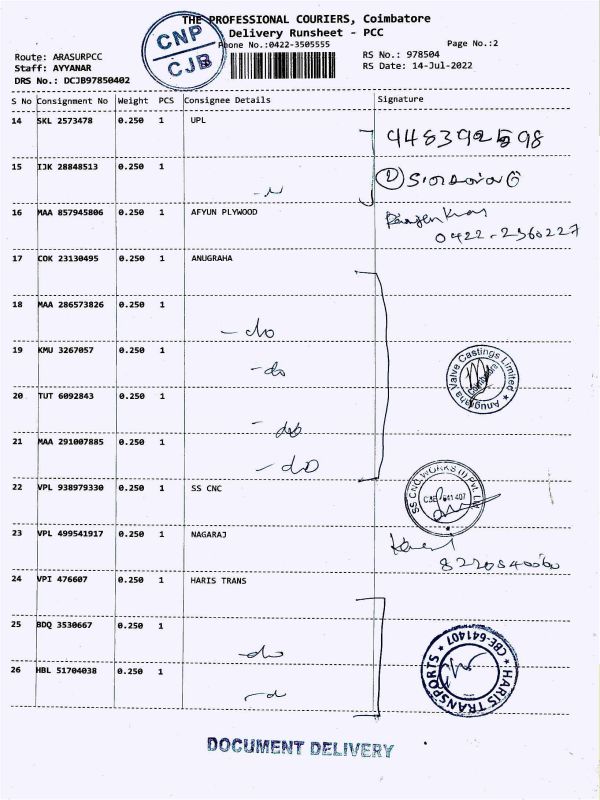 THE PROFESSIONAL COURIERS, Coimbatore
Delivery Runsheet - PCC
Phone No.:0422-3505555
Page No.:2
CNP
CJB
Route: ARASURPCC
RS No.: 978504
Staff: AYYANAR
RS Date: 14-Jul-2022
DRS No.: DCJB97850402
S No Consignment No Weight PCS Consignee Details Signature
14 SKL 2573478 0.250 1 UPL
15 IJK 28848513 0.250 1
16 MAA 857945806 0.250 1 AFYUN PLYWOOD
0422-2360227
17 COK 23130495 0.250 1 ANUGRAHA
18 MAA 286573826 0.250 1
- do
19 KMU 3267057 0.250 1
- do
Anugraha Valve Castings Limited
Coimbatore
20 TUT 6092843 0.250 1
- do
21 MAA 291007885 0.250 1
- do
22 VPL 938979330 0.250 1 SS CNC
SS CNC WORKS (I) PVT LTD
CBE 641 407
23 VPL 499541917 0.250 1 NAGARAJ
24 VPI 476607 0.250 1 HARIS TRANS
25 BDQ 3530667 0.250 1
- do
26 HBL 51704038 0.250 1
HARIS TRANSPORTS
CBE-641407
DOCUMENT DELIVERY